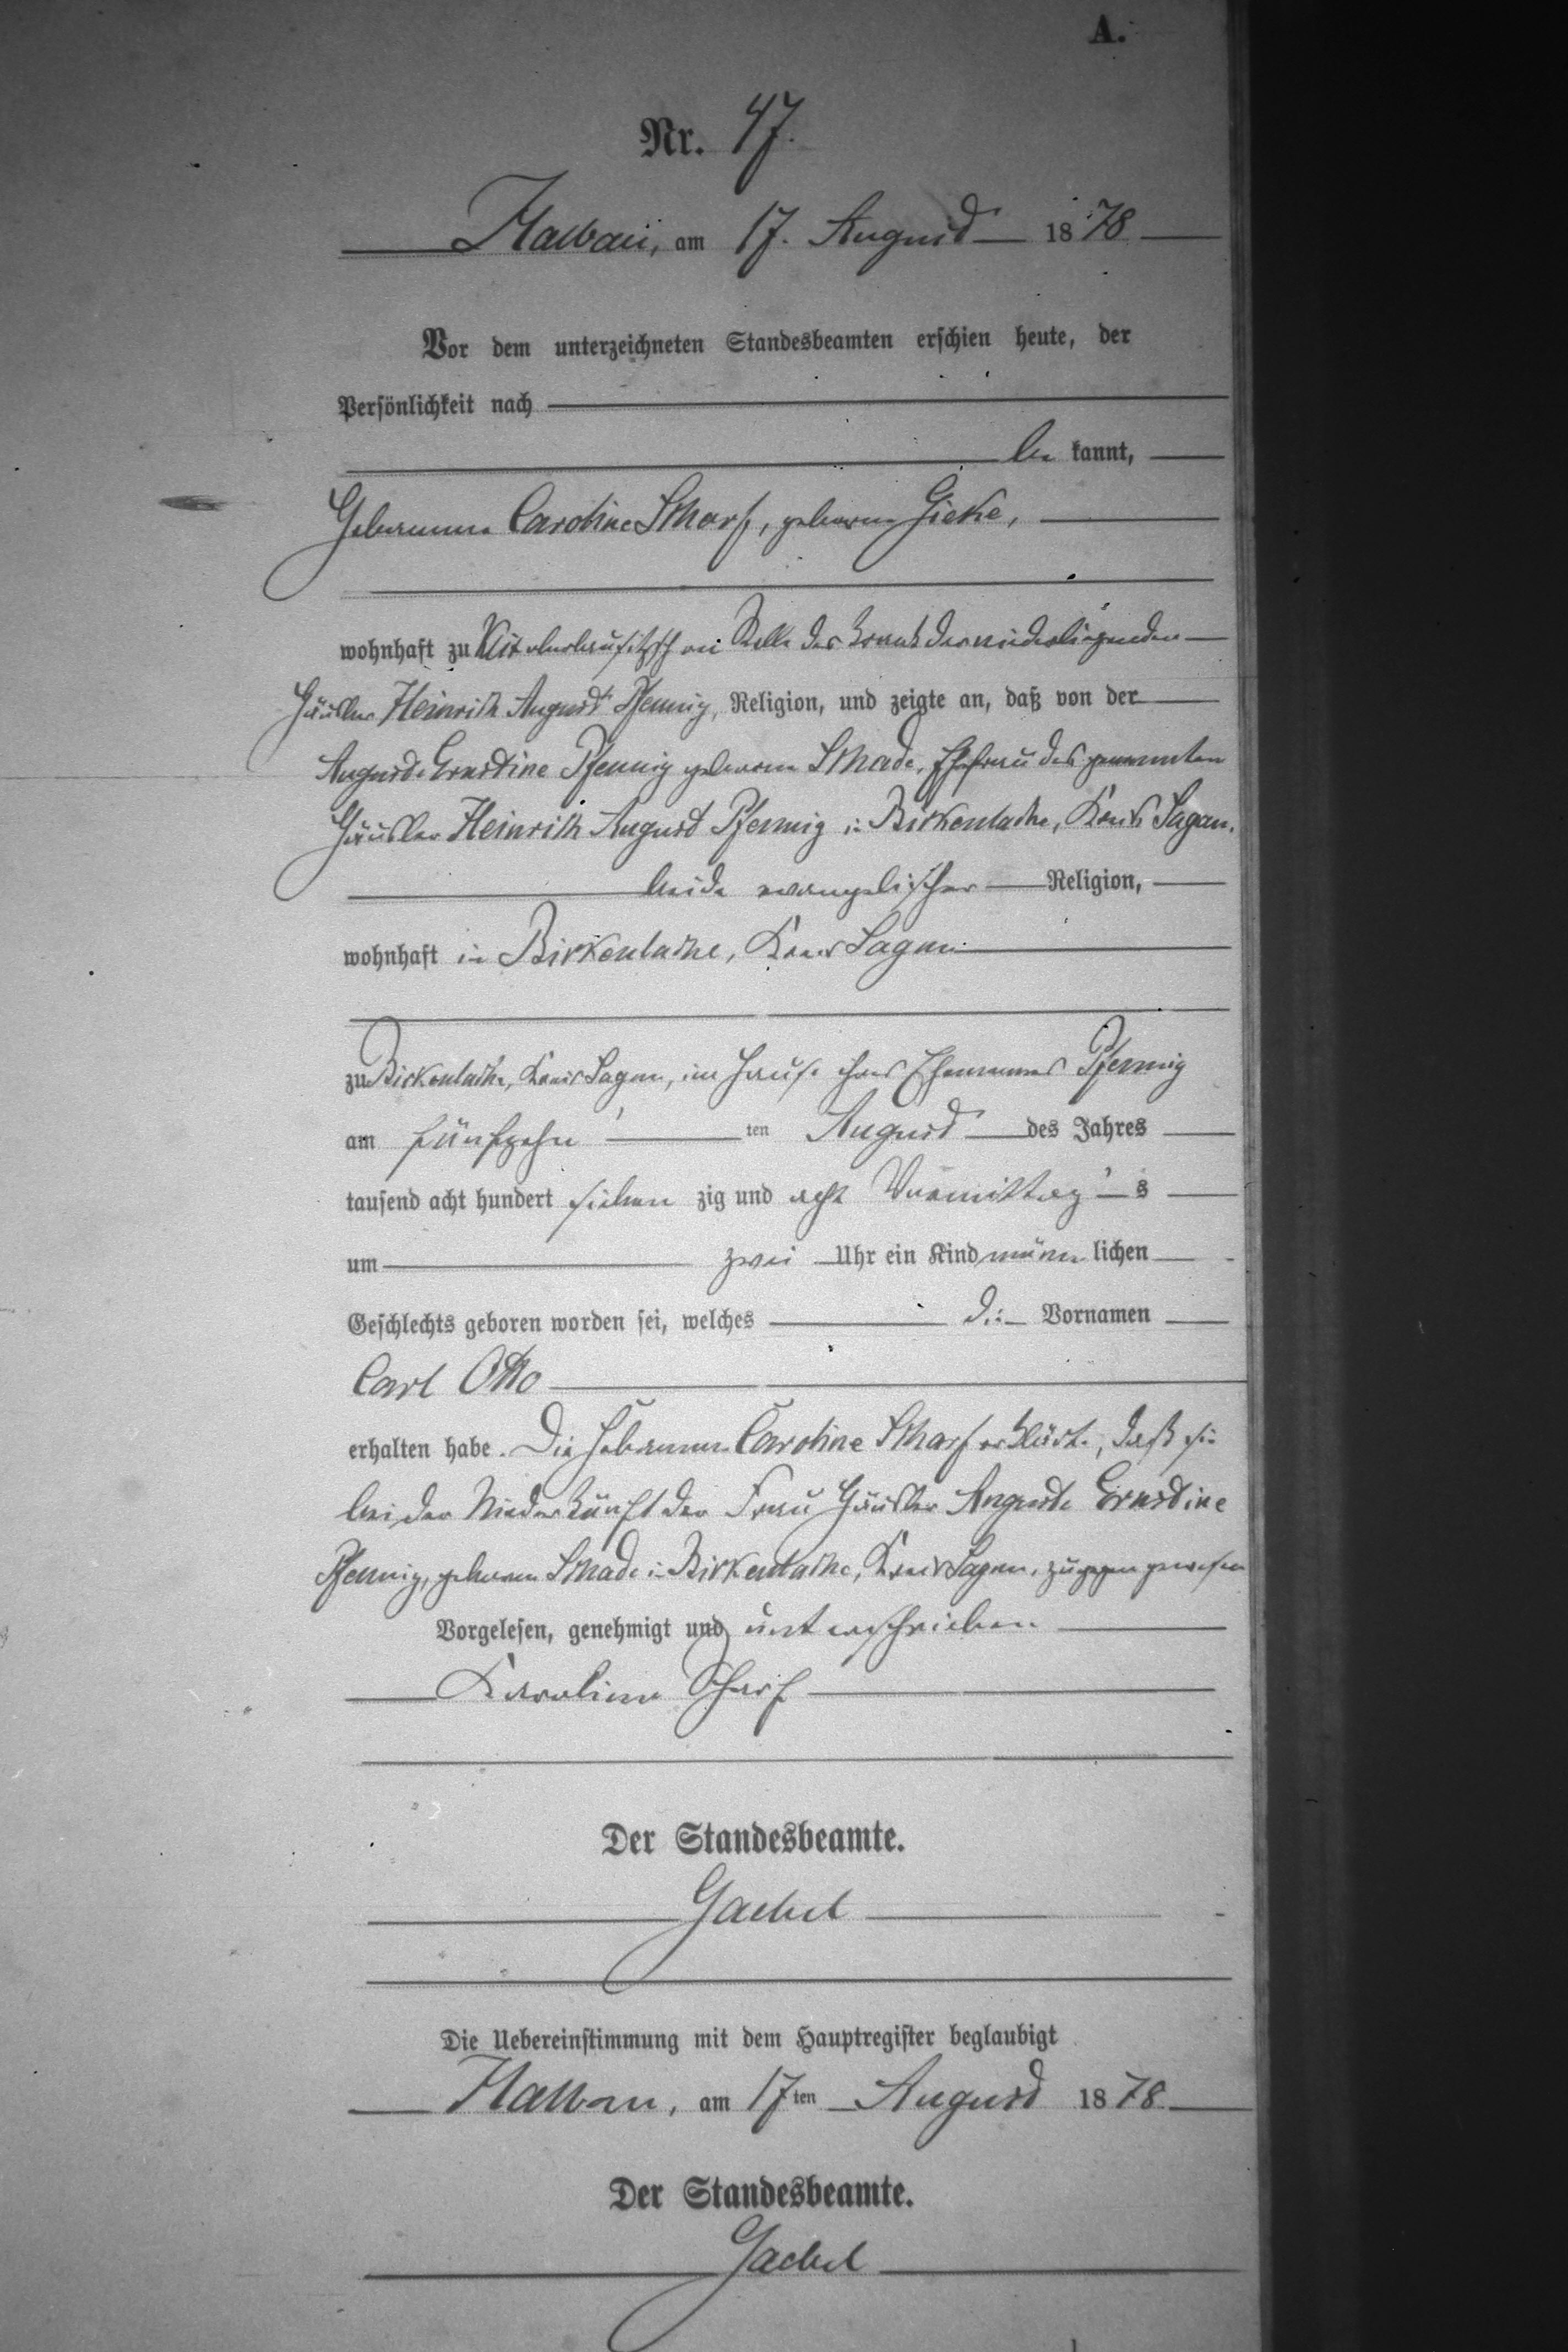 A.
Nr. 47.
Halbau, am 17. August 1878
Vor dem unterzeichneten Standesbeamten erschien heute, der
Persönlichkeit nach
be kannt,
Hebamme Caroline Scharf, geborne Gieke,
wohnhaft zu Klix oberlausitzsch an Stelle des krank darniederliegenden
Häusler Heinrich August Pfennig, Religion, und zeigte an, daß von der
Auguste Ernestine Pfennig geborene Schade, Ehefrau des genannten
Häusler Heinrich August Pfennig in Birkenlache, Kreis Sagan,
beide evangelischer Religion,
wohnhaft in Birkenlache, Kreis Sagan
zu Birkenlache, Kreis Sagan, im Hause ihres Ehemannes Pfennig
am fünfzehn ten August des Jahres
tausend acht hundert sieben zig und acht Vormittag s
um zwei Uhr ein Kind männ lichen
Geschlechts geboren worden sei, welches die Vornamen
Carl Otto
erhalten habe. Die Hebamme Caroline Scharf erklärte, daß sie
bei der Niederkunft der Frau Häusler Auguste Ernestine
Pfennig, geborene Schade in Birkenlache, Kreis Sagan, zugegen gewesen
Vorgelesen, genehmigt und unterschrieben
Karoline Scharf
Der Standesbeamte.
Gaebel
Die Uebereinstimmung mit dem Hauptregister beglaubigt
Halbau, am 17ten August 1878
Der Standesbeamte.
Gaebel